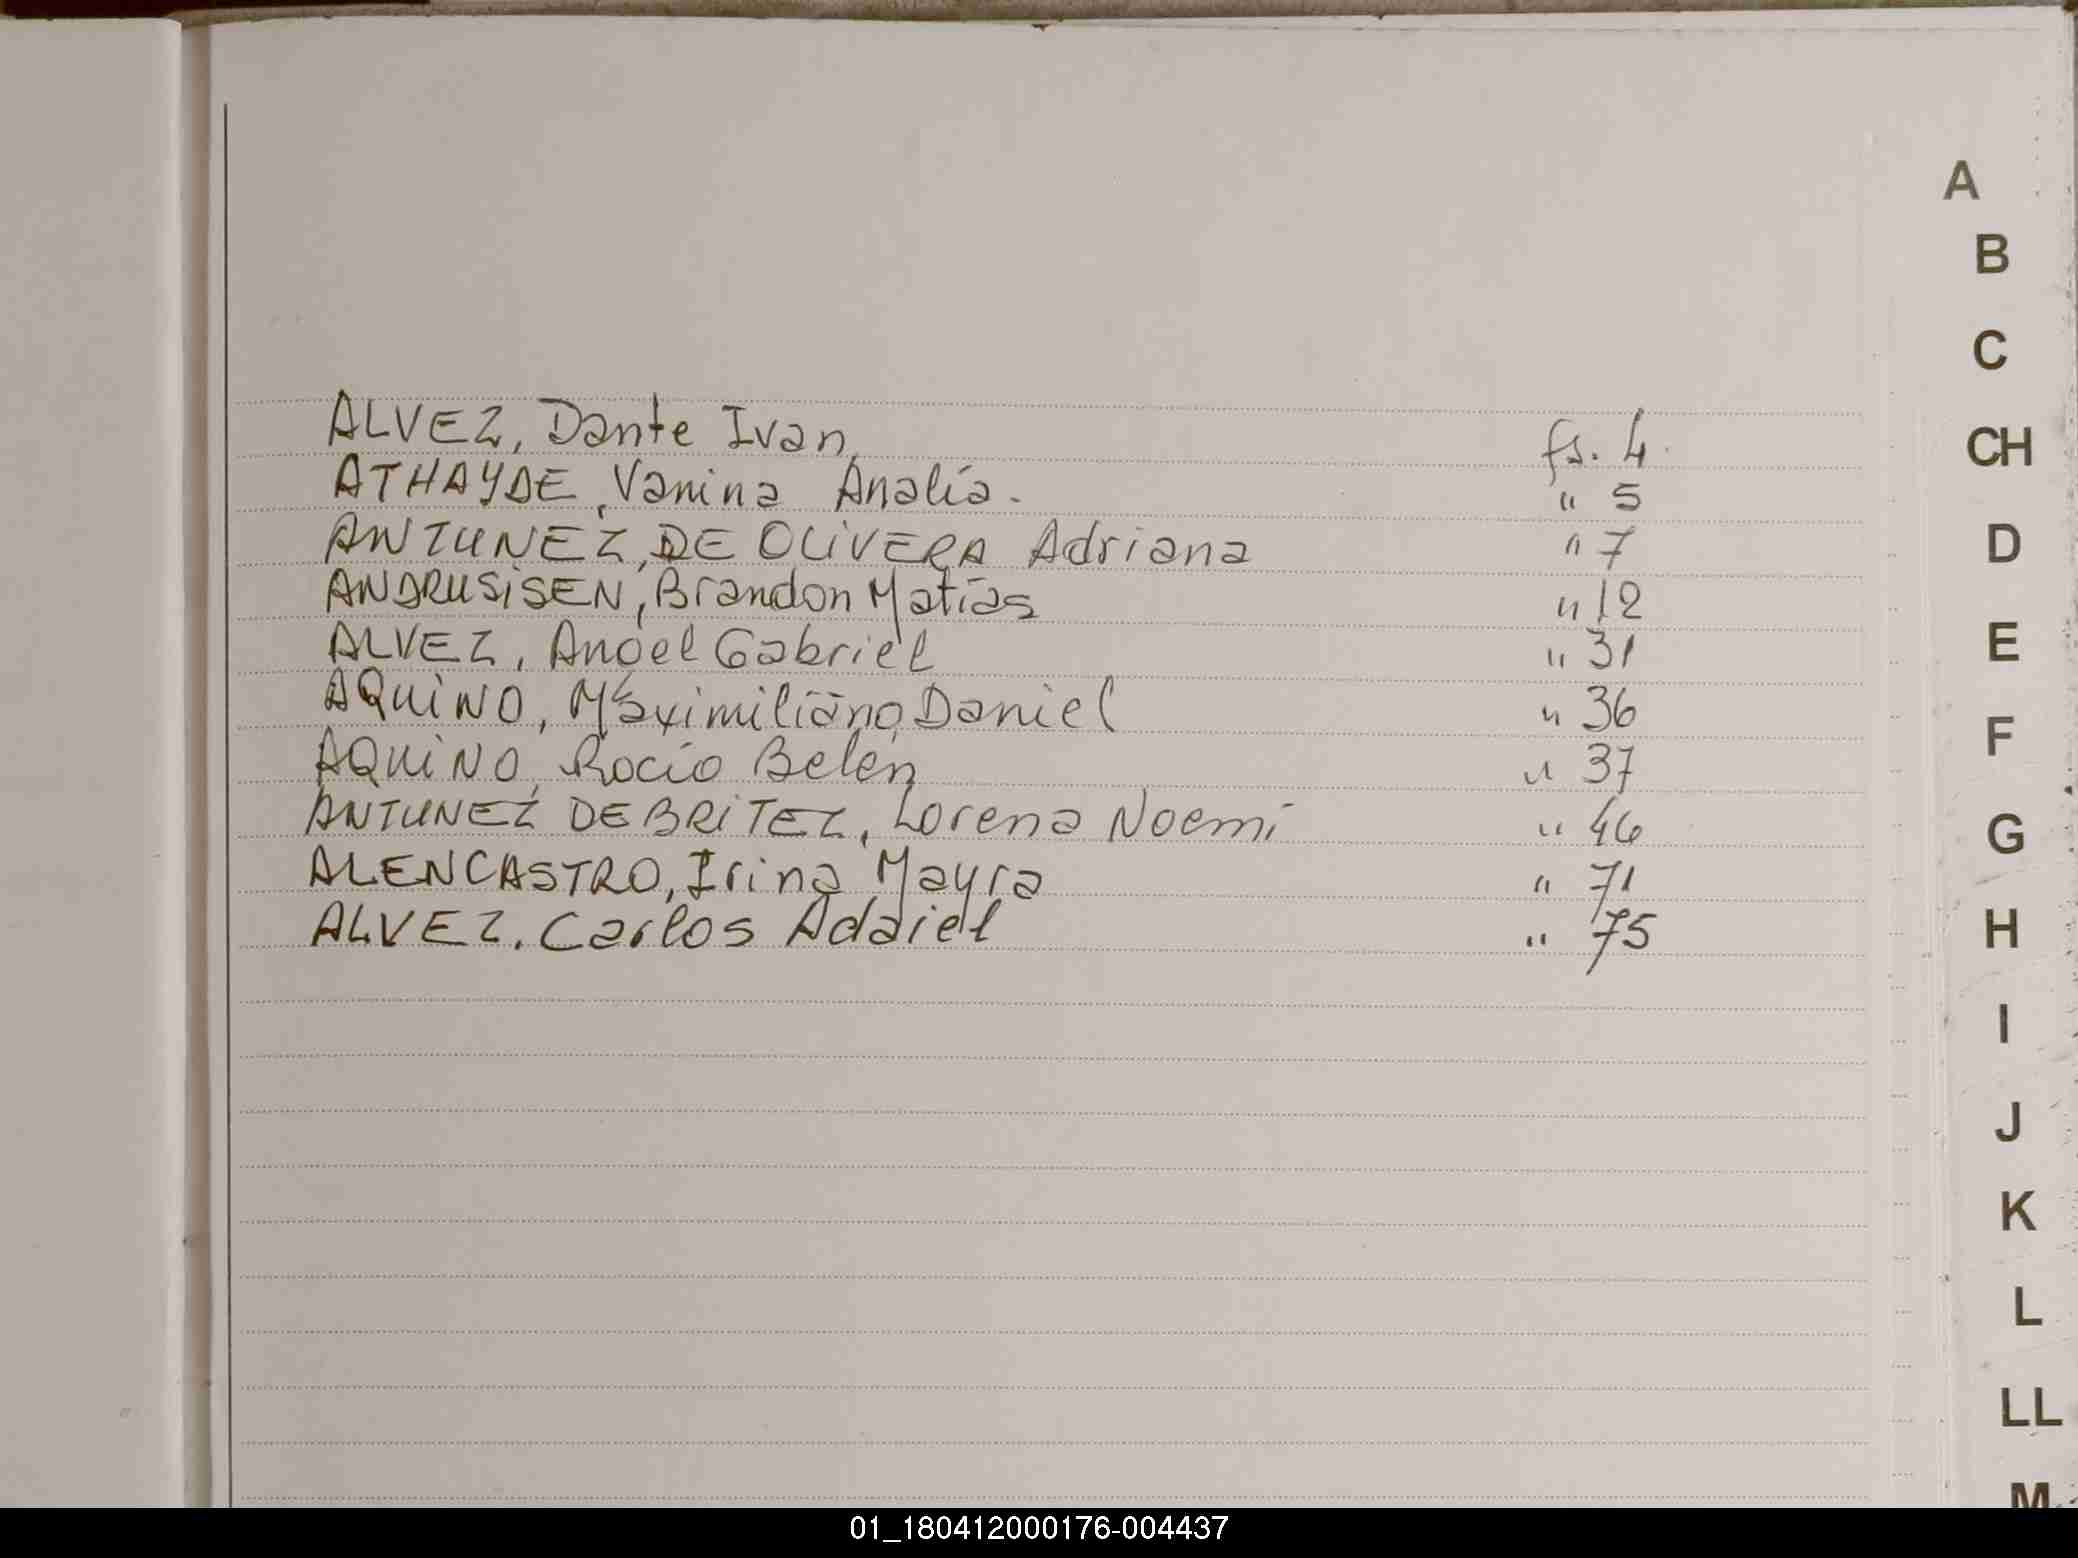 ALVEZ, Dante Ivan fs. 4
ATHAYDE, Vanina Analía. " 5
ANTUNEZ, DE OLIVERA Adriana " 7
ANDRUSISEN, Brandon Matías " 12
ALVEZ, Angel Gabriel " 31
AQUINO, Maximiliano Daniel " 36
AQUINO, Rocío Belén " 37
ANTUNEZ DE BRITEZ, Lorena Noemí " 46
ALENCASTRO, Irina Mayra " 71
ALVEZ, Carlos Adaiel " 75
A
B
C
CH
D
E
F
G
H
I
J
K
L
LL
M
01_180412000176-004437